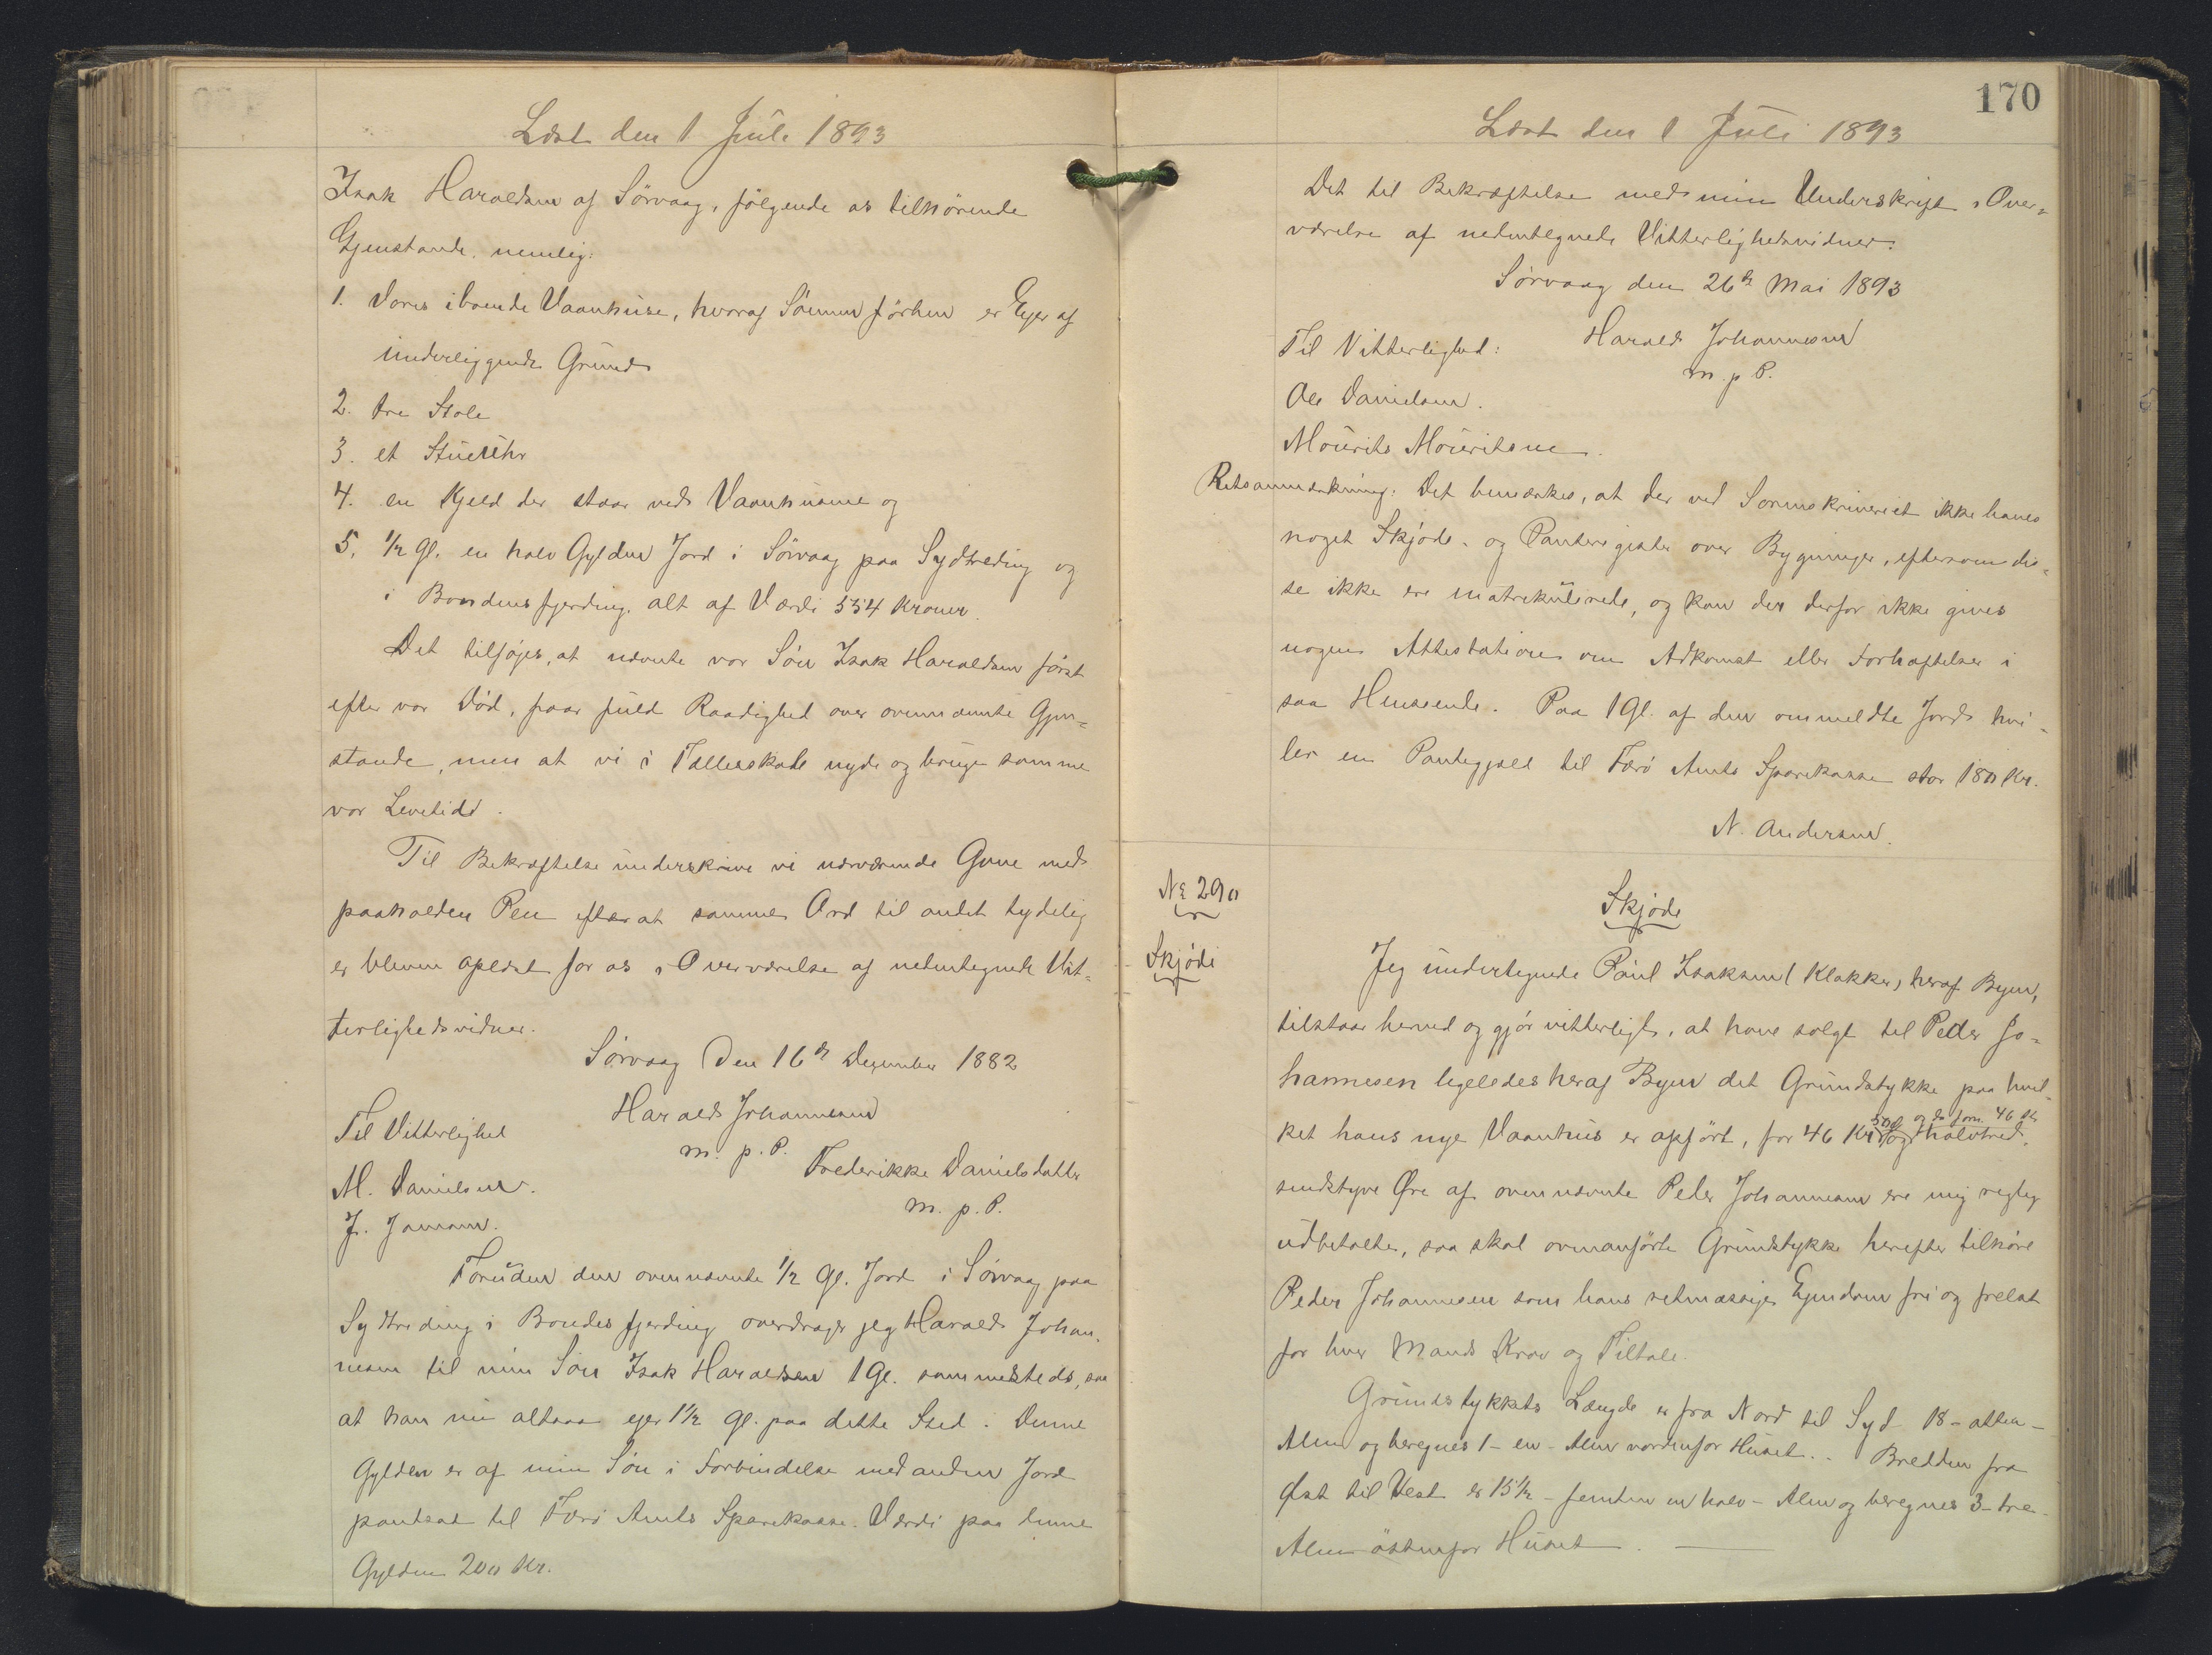 Læst den 1 Juli 1893
Isak Haraldsen af Sörvaag, fölgende os tilhörende
Gjenstande, nemlig:
1. Vores iboende Vaanhuse, hvoraf Sönnen förhen er Ejer af
underliggende Grund
2. tre Stole
3. et Stueuhr
4. en Kjeld der staar ved Vaanhusene og
5. 1/2 Gl. en halv Gylden Jord i Sörvaag paa Sydtreding og
i Bondens fjerding. alt af Værdi 554 Kroner.
Det tilföjes, at nævnte vor Sön Isak Haraldsen först
efter vor Död, faar fuld Raadighed over ovennævnte Gjen-
stande, men at vi i Fællesskab nyde og bruge samme
vor Levetid.
Til Bekræftelse underskrive vi nærværende Gave med
paaholden Pen efter at samme Ord til andet tydelig
er bleven oplæst for os i Overværelse af nedentegnede Vit-
terlighedsvidner.
Sörvaag Den 16de December 1882
Til Vitterlighed
Harald Johannesen
m. p. P.
Frederikke Danielsdatter
m. p. P.
M. Danielsen.
J. Joensen.
Foruden den ovennævnte 1/2 Gl. Jord i Sörvaag paa
Sydtreding i Bondes fjerding overdrager jeg Harald Johan-
nesen til min Sön Isak Haraldsen 1 Gl. sammesteds, saa
at han nu altsaa ejer 1 1/2 Gl. paa dette Sted. Denne
Gylden er af min Sön i Forbindelse med anden Jord
pantsat til Færö Amts Sparekasse. Værdi paa denne
Gylden 200 Kr.
170
Læst den 1 Juli 1893
Det til Bekræftelse med min Underskrift i Over-
værelse af nedentegnede Vitterlighedsvidner.
Sörvaag den 26de Mai 1893
Til Vitterlighed:
Harald Johannesen
m. p P.
Ole Danielsen.
Mourits Mouritsen.
Retsanmærkning: Det bemærkes, at der ved Sorenskriveriet ikke haves
noget Skjöde- og Panteregister over Bygninger, eftersom dis-
se ikke ere matrikulerede, og kan der derfor ikke gives
nogen Attestation om Adkomst eller Forhæftelser i
saa Henseende. Paa 1 Gl. af den ommeldte Jord hvi-
ler en Pantegjæld til Færö Amts Sparekasse stor 180 Kr.
N. Andersen.
No 290
Skjöde
Skjöde
Jeg undertegnede Poul Isaksen (Klakker) heraf Byen,
tilstaar herved og gjör vitterligt, at have solgt til Peder Jo-
hannesen ligeledes heraf Byen det Grundstykke paa hvil-
ket hans nye Vaanhus er opfört, for 46 Kr 50 Ö og da som 46 Kr og halvtred-
sindstyve Øre af ovennævnte Peder Johannesen ere mig rigtig
udbetalte, saa skal ovenanförte Grundstykke herefter tilhöre
Peder Johannesen som hans retmæssige Ejendom fri og frelst
for hver Mands Krav og Tiltale.
Grundstykkets Længde er fra Nord til Syd 18 - atten -
Alen og beregnes 1 - en - Alen nordenfor Huset. - Bredden fra
Øst til Vest er 15 1/2 - femten en halv - Alen og beregnes 3 - tre -
Alen östenfor Huset.